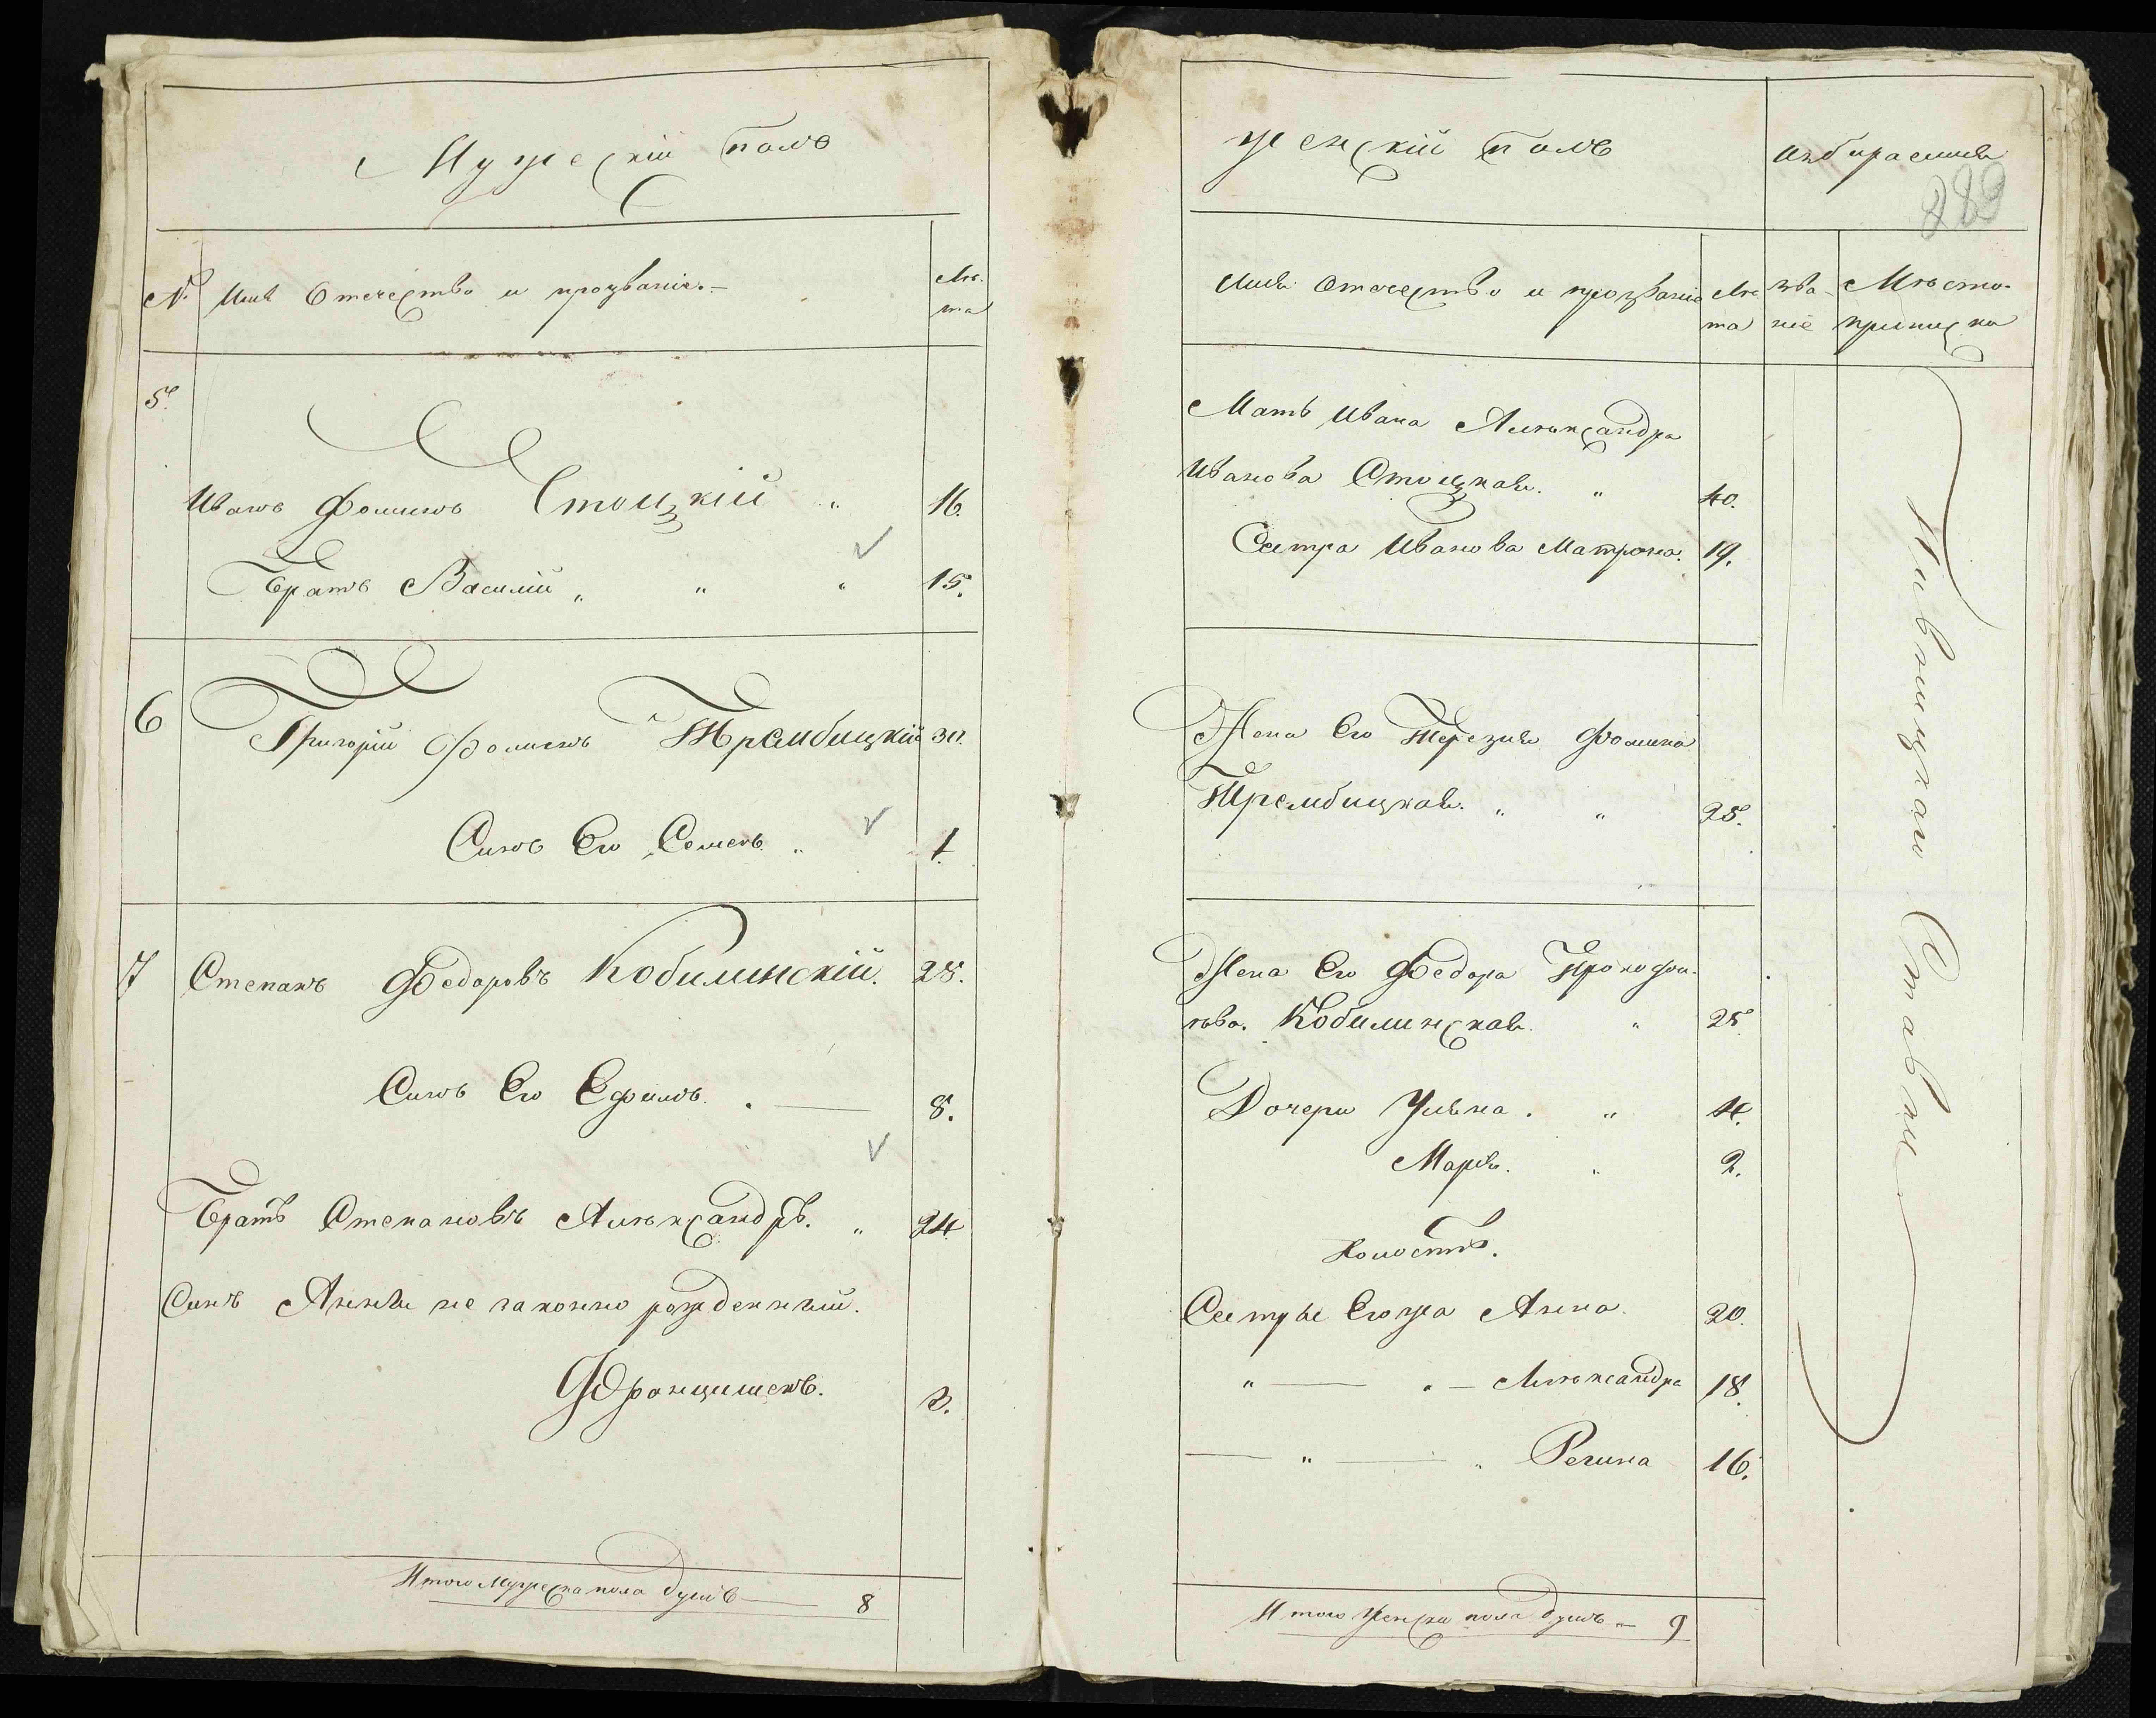 Мужескій полъ
№ Имя Отечество и прозваніе.—
Лѣ-
та
5.
Иванъ Фоминъ Стоцкій „ 16.
Братъ Василій „ „ „ 15.
6 Григорій Фоминъ Трембицкій 30.
Синъ Его Семенъ. „ 1.
7 Степанъ Федоровъ Кобилинскій. 28.
Синъ Его Ефимъ. . — 8.
Братъ Степановъ Алѣксандръ. „ 24
Синъ Анны не законно рожденный.
Францишекъ. 3.
Итого Мужеска пола душъ — 8
Женскій полъ
289
Имя Отечество и прозваніе
Лѣ
та
зва-
ніе
Мѣсто-
приписка
Мать Ивана Алѣксандра
Иванова Стоцкая. „ 40.
Сестра Иванова Матрона. 19.
Жена Его Терезия Фомина
Трембицкая. „ „ 25.
Жена Его Федора Прокофи-
ѣва. Кобилинская. „ 25
Дочери Ульяна. „ 4.
Марія. „ 2.
Холостъ.
Сестры Егожа Анна. 20.
„ — „ — Алѣксандра 18.
— „ — „ Регина 16.
Итого Женска пола душъ — 9
Пивницкаго Ставки